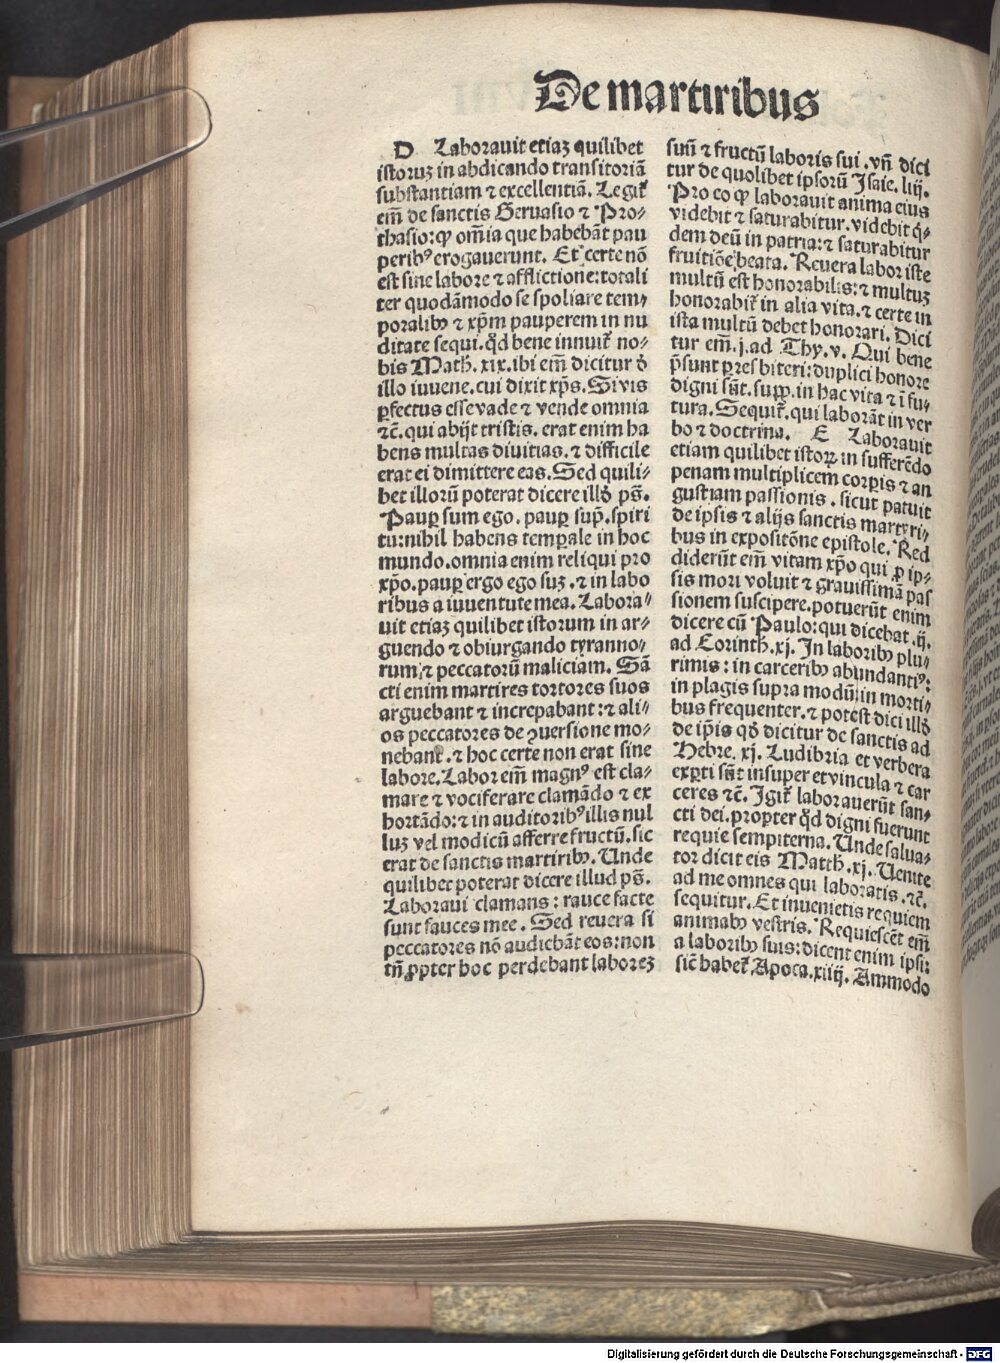 De martiribus
D Laborauit etiaꝫ quilibet
istoruꝫ in abdicando transitoriā
substantiam ⁊ excellentiā. Legit᷑
em̄ de sanctis Geruasio ⁊ Pro⸗
thasio: ꝙ om̄ia que habebāt pau
peribꝰ erogauerunt. Et certe nō
est sine labore ⁊ afflictione: totali
ter quodāmodo se spoliare tem⸗
poralibꝫ ⁊ xp̄m pauperem in nu
ditate sequi. qd̛ bene innuit᷑ no⸗
bis Math. xix. ibi em̄ dicitur d̛
illo iuuene. cui dixit xp̄s. Si vis
ꝑfectus esse vade ⁊ vende omnia
⁊c̄. qui abijt tristis. erat enim ha
bens multas diuitias. ⁊ difficile
erat ei dimittere eas. Sed quili⸗
bet illorū poterat dicere illd̛ ps̄.
Pauꝑ sum ego. pauꝑ sup̄. spiri
tu: nihil habens temꝑale in hoc
mundo. omnia enim reliqui pro
xp̄o. pauꝑ ergo ego suꝫ. ⁊ in labo
ribus a iuuentute mea. Labora⸗
uit etiaꝫ quilibet istorum in ar⸗
guendo ⁊ obiurgando tyranno⸗
rum ⁊ peccatorū maliciam. Sā
cti enim martires tortores suos
arguebant ⁊ increpabant: ⁊ ali⸗
os peccatores de ꝯuersione mo⸗
nebant. ⁊ hoc certe non erat sine
labore. Labor em̄ magnꝰ est cla⸗
mare ⁊ vociferare clamādo ⁊ ex
hortādo: ⁊ in auditoribꝰ illis nul
luꝫ vel modicū afferre fructū. sic
erat de sanctis martiribꝫ. Unde
quilibet poterat dicere illud ps̄.
Laboraui clamans: rauce facte
sunt fauces mee. Sed reuera si
peccatores nō audiebāt eos: non
tn̄ ꝓpter hoc perdebant laboreꝫ
suū ⁊ fructū laboris sui. vn̄ dici
tur de quolibet ipsorū Isaie. liij.
Pro eo ꝙ laborauit anima eius
videbit ⁊ saturabitur. videbit q̛⸗
dem deū in patria: ⁊ saturabitur
fruitiōe beata. Reuera labor iste
multū est honorabilis: ⁊ multuꝫ
honorabit᷑ in alia vita. ⁊ certe in
ista multū debet honorari. Dici
tur em̄. j. ad Thy. v. Qui bene
p̄sunt presbiteri: duplici honore
digni sūt. supp̄. in hac vita ⁊ ī fu⸗
tura. Sequit᷑. qui laborāt in ver
bo ⁊ doctrina. E Laborauit
etiam quilibet istoꝝ in sufferēdo
penam multiplicem corꝑis ⁊ an
gustiam passionis. sicut patuit
de ipsis ⁊ alijs sanctis martyri⸗
bus in expositōne epistole. Red
diderūt em̄ vitam xp̄o qui ꝓ ip⸗
sis mori voluit ⁊ grauissimā pas
sionem suscipere. potuerūt enim
dicere cū Paulo: qui dicebat. ij.
ad Corinth. xj. In laboribꝫ plu⸗
rimis: in carceribꝫ abundantiꝰ:
in plagis supra modū: in morti⸗
bus frequenter. ⁊ potest dici illd̛
de ip̄is qd̛ dicitur de sanctis ad
Hebre. xj. Ludibria et verbera
exꝑti sūt insuper et vincula ⁊ car
ceres ⁊c̄. Igit᷑ laborauerūt san⸗
cti dei. propter qd̛ digni fuerunt
requie sempiterna. Unde salua⸗
tor dicit eis Matth. xj. Uenite
ad me omnes qui laboratis. ⁊c̄.
sequitur. Et inuenietis requiem
animabꝫ vestris. Requiescēt em̄
a laboribꝫ suis: dicent enim ipsi:
sic̄ habet᷑ Apoca. xiiij. Ammodo
Digitalisierung gefördert durch die Deutsche Forschungsgemeinschaft - DFG